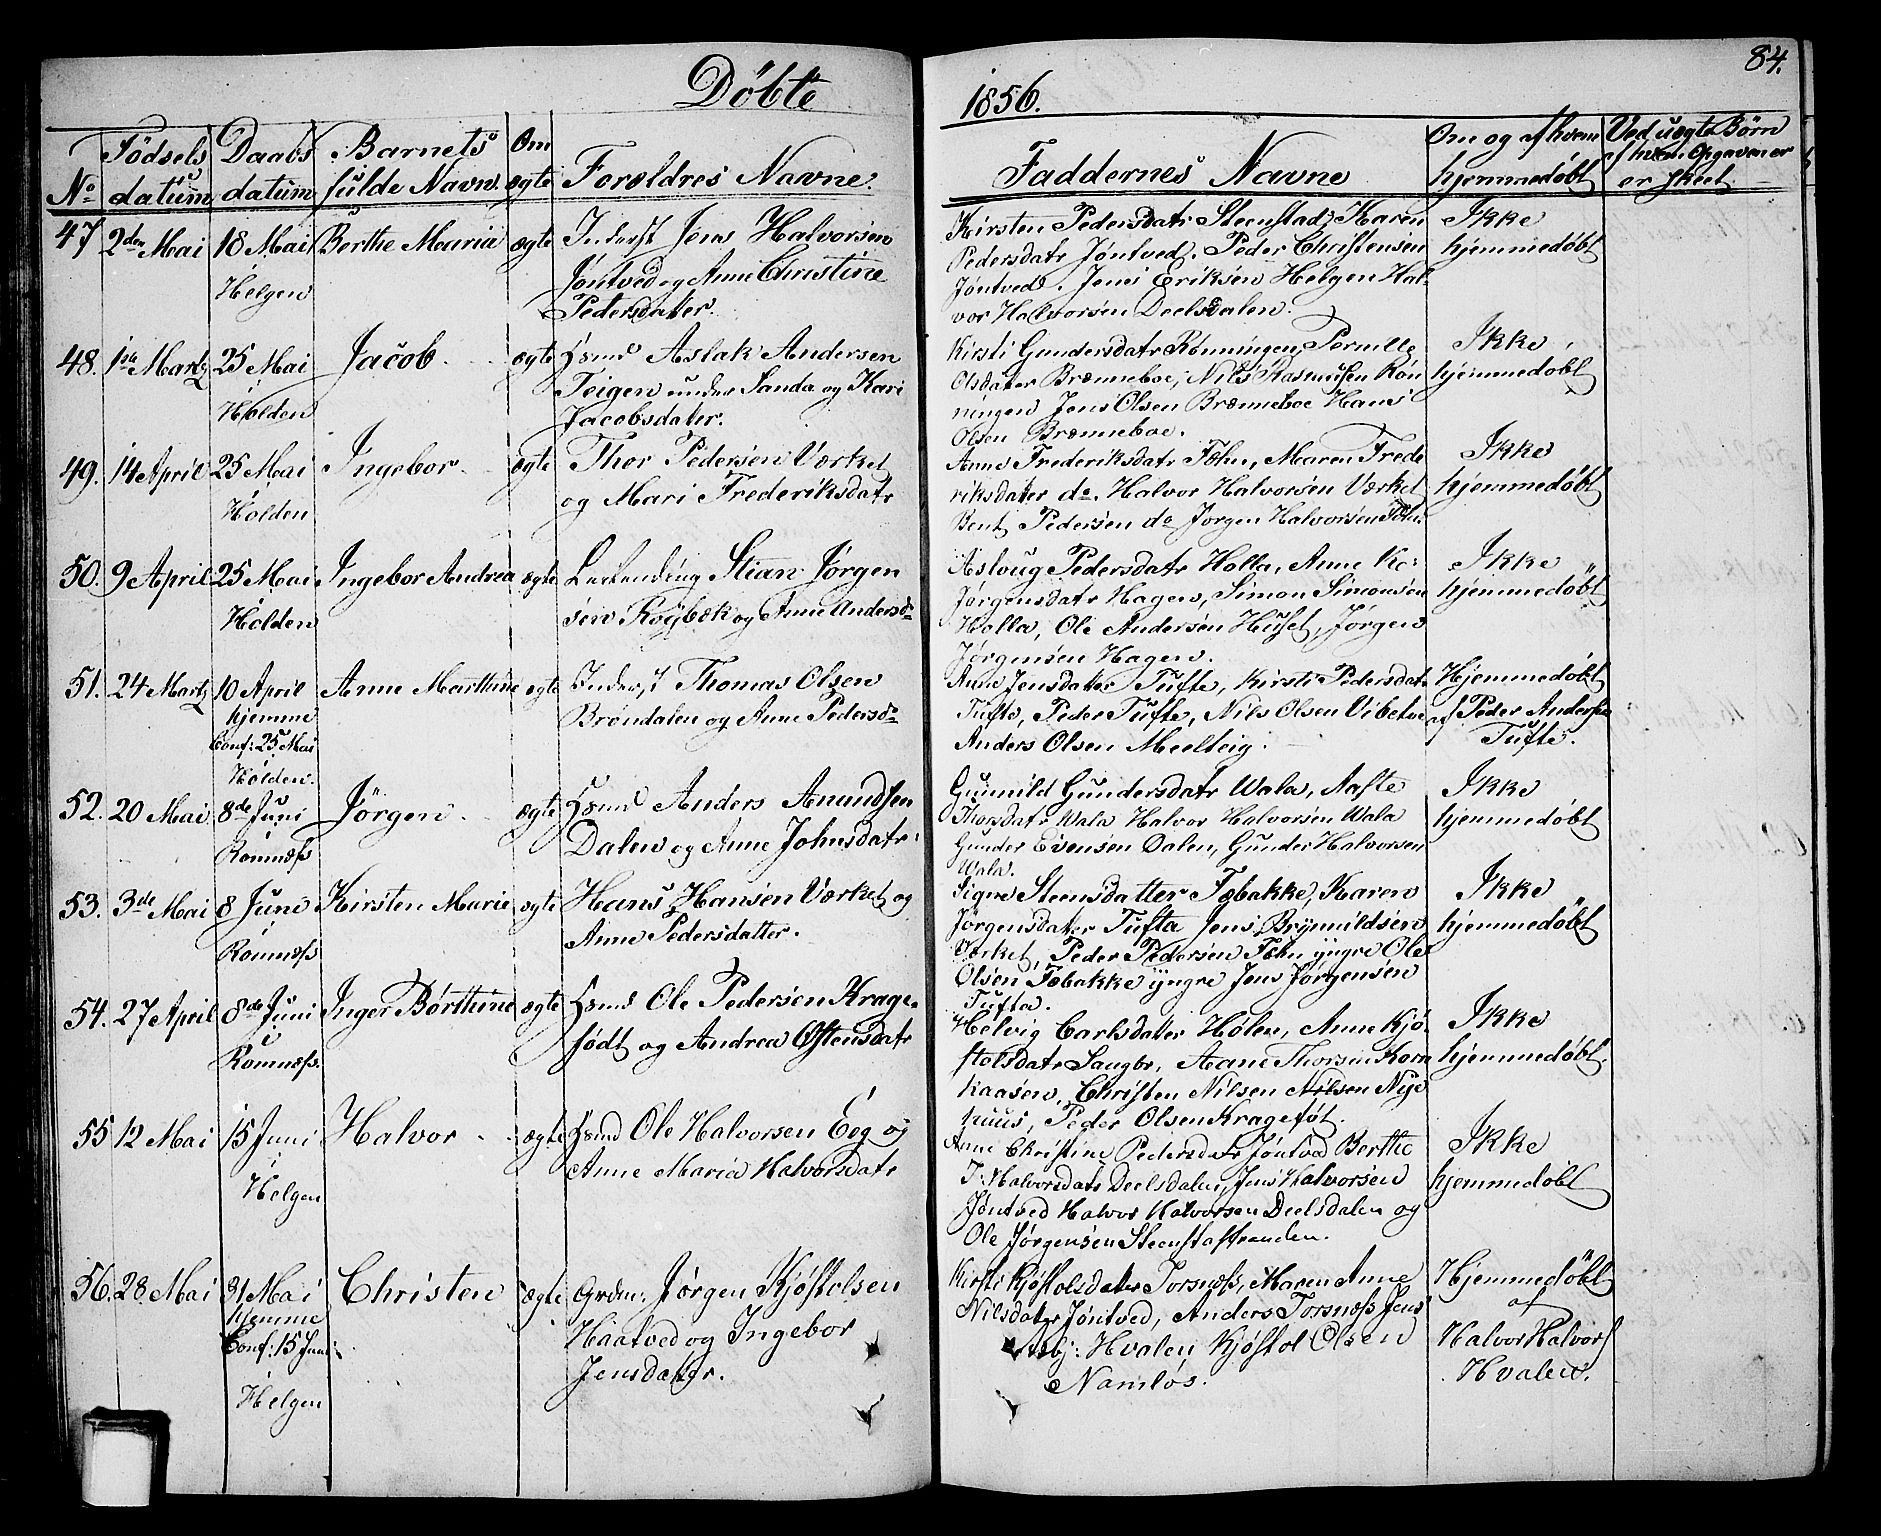 Döbte
1856.
84.
No
Födsels datum
Daabs datum
Barnets fulde Navn.
Om ægte
Forældres Navne.
Faddernes Navne
Om og af hvem hjemmedöbt
Ved uægte Börn af hvem Opgaven er er skeet
47 2den Mai 18 Mai Berthe Maria ægte Inderst Jens Halvorsen
Helgen Jöntved og Anne Christine
Pedersdatter.
Kirsten Pedersdatr Steenstad, Karen
Pedersdatr Jöntved. Peder Christensen
Jöntved. Jens Eriksen Helgen Hal-
vor Halvorsen Deelsdalen.
Ikke
hjemmedöbt
48. 1ste Martz 25 Mai Jacob ægte Hsmd Aslak Andersen
Holden Teigen under Sanda og Kari
Jacobsdater.
Kirsti Gundersdatr Rönningen, Pernille
Olsdater Brænneboe, Nils Rasmusen Rön
ningen Jens Olsen Brænneboe Hans
Olsen Brænneboe.
Ikke
hjemmedöbt
49. 14 April 25 Mai Ingebor ægte Thor Pedersen Værket
Holden og Mari Frederiksdatr
Anne Frederiksdatr Fæhn, Maren Frede
riksdater do. Halvor Halvorsen Værket
Bent Pedersen do Jorgen Halvorsen
Ikke
hjemmedöbt
50. 9 April 25 Mai Ingebor Andrea ægte Stian Jörgen
Holden sen Röybæk og Anne Andersd
Aslaug Pedersdatr Holla, Anne Ka:
Jörgensdatr Hagen, Simon Simonsen
Holla, Ole Andersen Huset, Jörgen
Jörgensen Hagen.
Ikke
hjemmedöbt
51. 24 Martz 10 April Anne Marthine ægte Inderst Thomas Olsen
hjemme Bröndalen og Anne Pedersd
Conf: 25 Mai
Holden.
Anne Jensdatter Tufte, Kirsti Pedersdatr
Tufte, Peder Tufte, Nils Olsen Vibetoe
Anders Olsen Meelteig.
Hjemmedöbt
af Peder Andersen
Tufte.
52. 20 Mai 8de Juni Jörgen ægte Hsmd Anders Amundsen
Romnæss Dalen og Anne Johnsdatr.
Gunnild Gundersdatr Wala, Aaste
Thorsdatr Wala Halvor Halvorsen Wala
Gunder Evensen Dalen, Gunder Halvorsen
Wala.
Ikke
hjemmedöbt
53. 3de Mai 8 June Kirsten Marie ægte Hans Hansen Værket og
Romnæss Anne Pedersdatter.
Signe Steensdatter Fæbakke, Karen
Jörgensdater Tufta Jens Brynnildsen
Værket, Peder Pedersen Fæhn yngre Ole
Olsen Fæbakke yngre Jens Jörgensen
Tufta.
Ikke
hjemmedöbt
54. 27 April 8de Juni Inger Börthine ægte Hsmd Ole Pedersen Krage-
Romnæss. födt og Andrea Östensdatr
Helvig Carlsdatter Holen, Anne Kjö-
stolsdatr Saugbr, Aane Thorsen Korn
kaasen, Christen Nilsen Nilsen Nye
huus, Peder Olsen Krageföt.
Ikke
hjemmedöbt.
55 12 Mai 15 Juni Halvor ægte Hsmd Ole Halvorsen Eeg og
Helgen Anne Maria Halvorsdatr
Anne Christine Pedersdatr Jöntved Berthe
I: Halvorsdatr Deelsdalen, Jens Halvorsen
Jöntved Halvor Halvorsen Deelsdalen og
Ole Jörgensen Steenstastranden.
Ikke
hjemmedöbt
56. 28 Mai 31 Mai Christen ægte Grdm: Jörgen Kjöstolsen
hjemme Haatved og Ingebor
Conf: 15 Juni Jensdater.
Helgen
Kirsti Kjöstolsdater Torsnæss, Maren Anne
Nilsdater Jöntved, Anders Torsnæss Jens
Hvalen Kjöstol Olsen
Namlös.
Hjemmedöbt
af
Halvor Halvors
Hvalen.